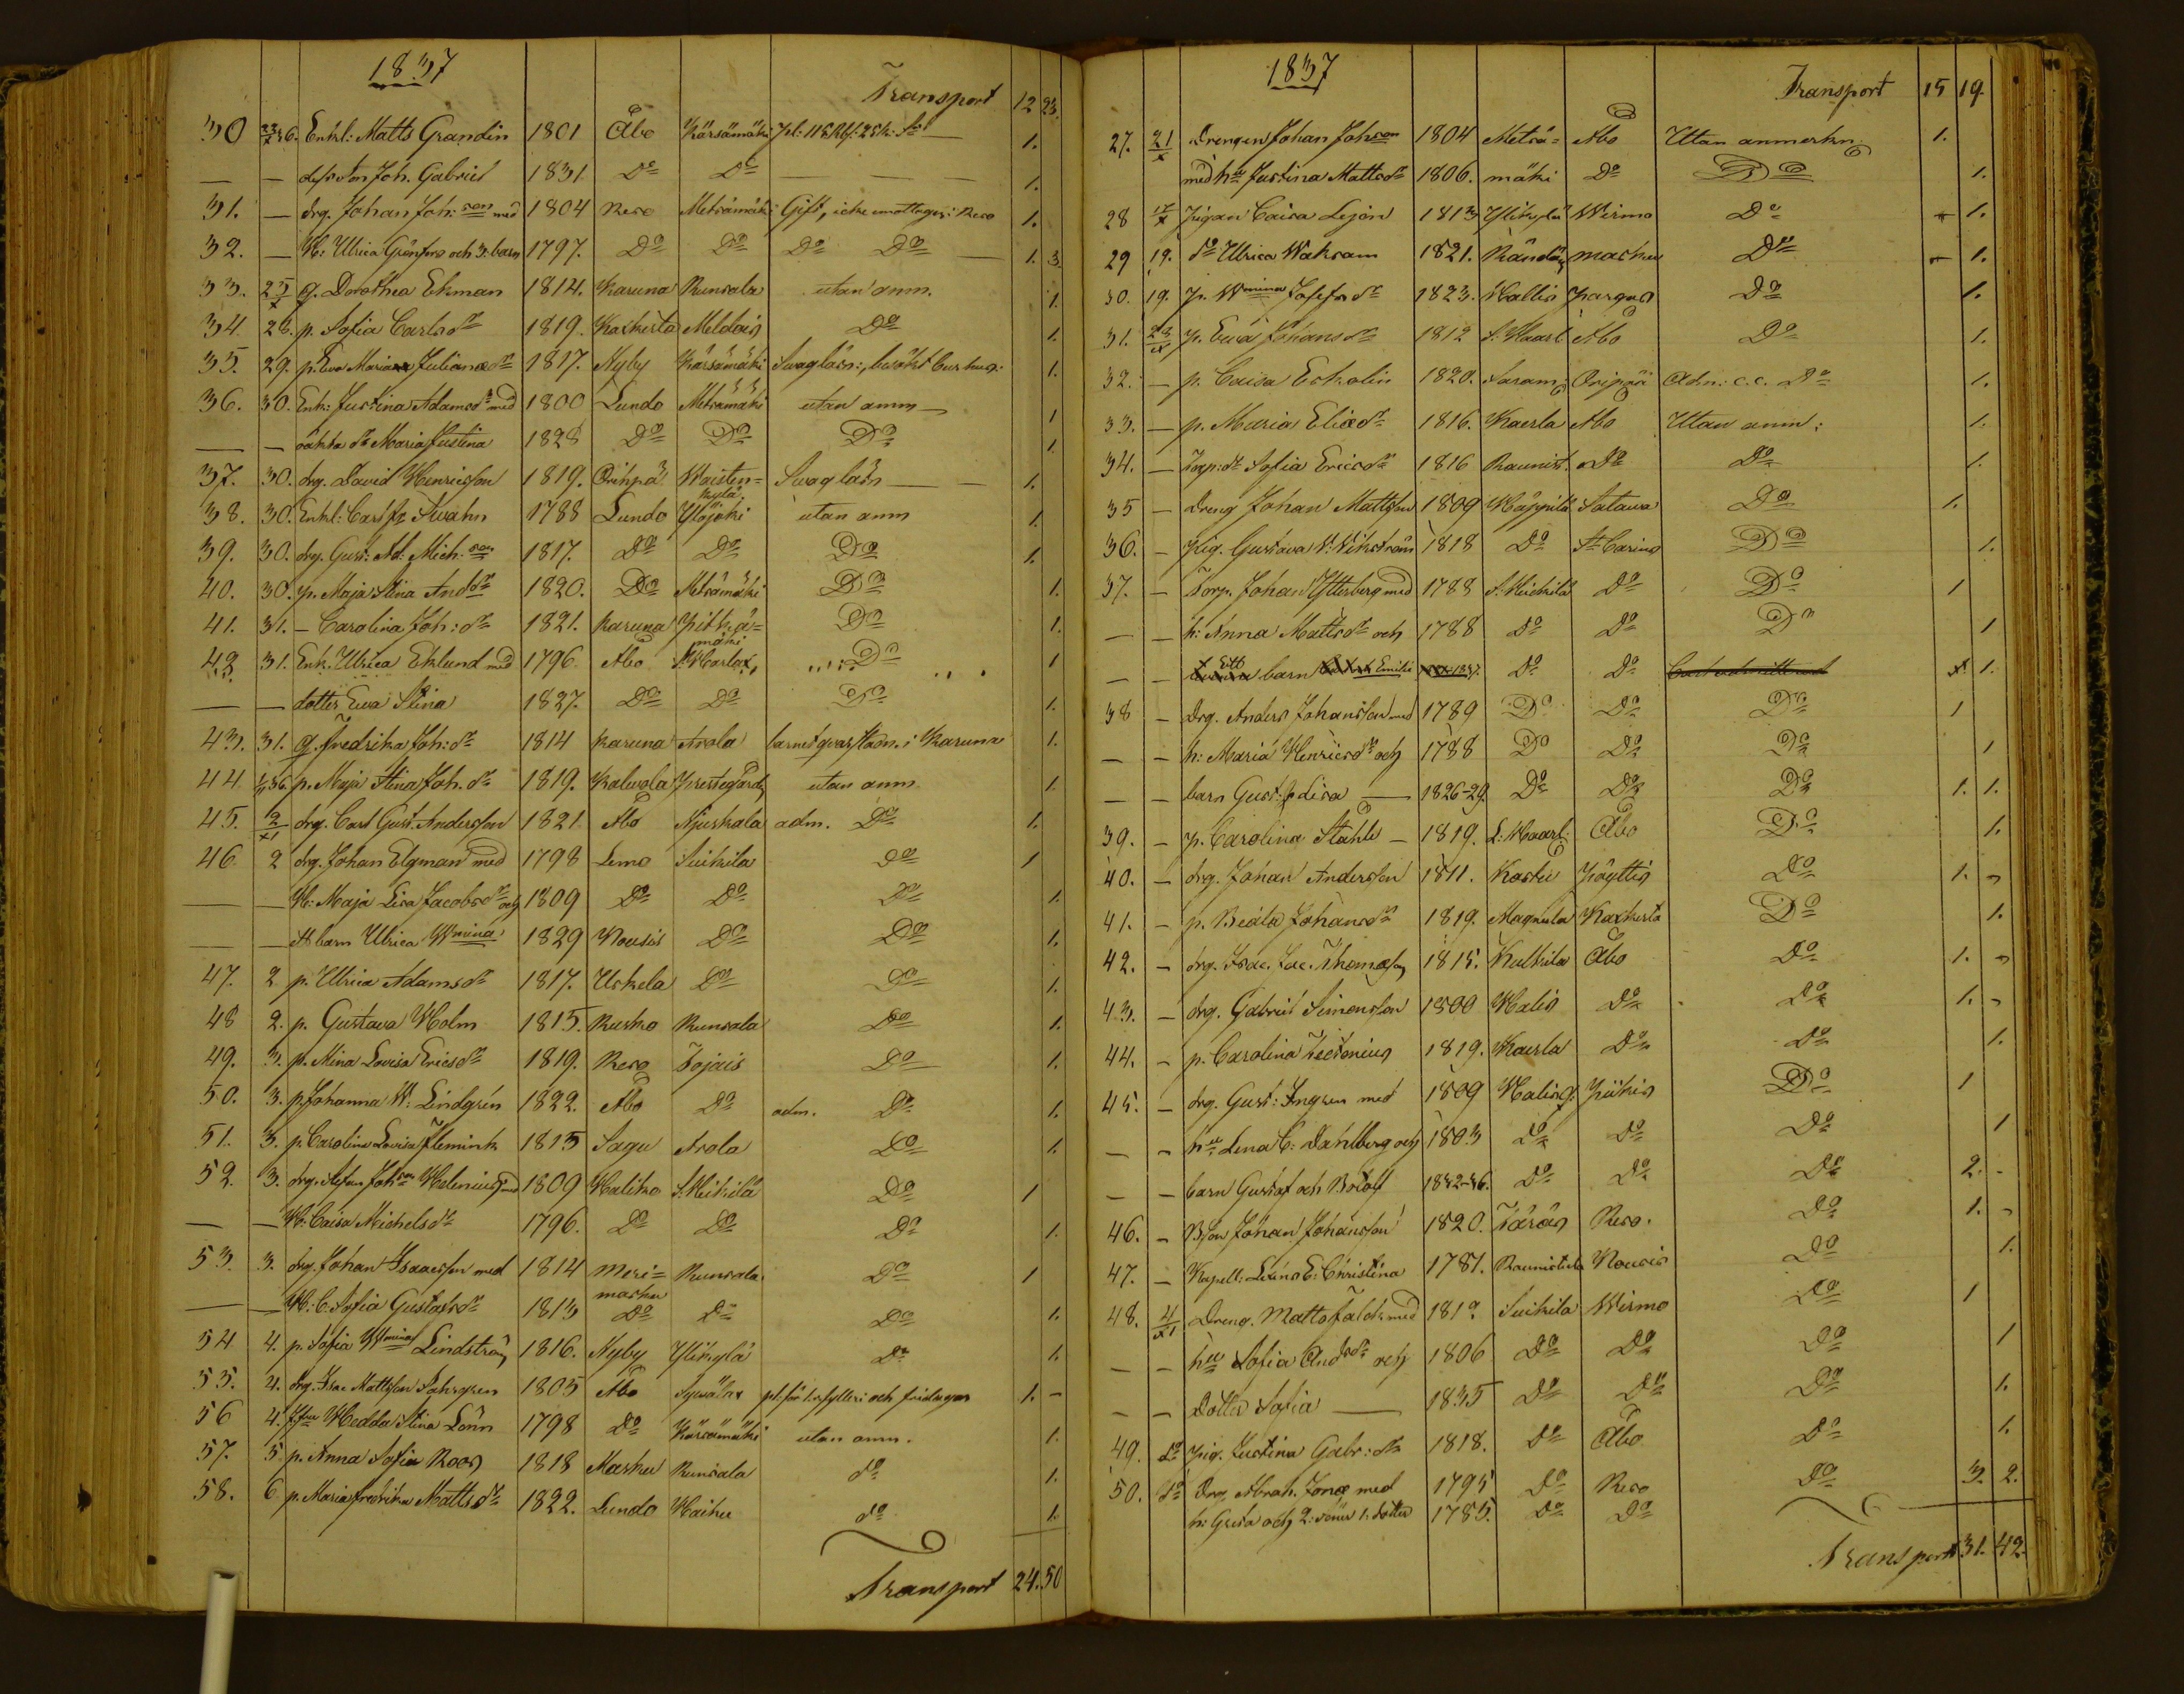 1837
Transport 12 23.
30 Enkl: Matts Grandin 1801 Åbo Kärsämäki 1.
Joh. Gabriel 1831. Do Do 1.
31. — drg. Johan Joh:son med 1804 Reso Metsämäki Gift, icke emottagen i Reso 1.
32. — H: Ulrica Grönfors och 3. barn 1797. Do Do Do Do 1. 3
33. 25/X q. Dorothea Ekman 1814. Karuna Runsala utan anm. 1.
34 28. p. Sofia Carlsdr 1819. Kaxkerta Meldois Do 1.
35. 29. p. Eva Maria Julianadr 1817. Nyby Kärsämäki Svag läsn:, 1.
36. 30. Enk: Justina Adamsdr med 1800 Lundo Metsämäki utan anm 1
— — oäkta dr Maria Justina 1828 Do Do Do 1.
37. 30. drg. David Henricsson 1819. Orihpä Waisten= Svag läsn 1.
kylä
38. 30. Enkl: Carl Fr Swahn 1788 Lundo Ylöjoki utan anm 1.
39. 30. drg. Gust: Ad. Mich.son 1817. Do Do Do 1.
40. 30. p. Maja Stina Anddr 1820. Do Metsämäki Do 1.
41. 31. — Carolina Joh:dr 1821. Karuna Pitkä= Do 1.
mäki
42. 31. Enk. Ulrica Eklund med 1796. Åbo Do 1
— — dotter Eva Stina 1827. Do Do Do 1.
43. 31. q. Fredrika Joh:dr 1814 Karuna Arola barnet qvar i Karuna 1.
44 p. Maja Stina Joh.dr 1819. Kalvola Prestegård utan anm. 1.
45. 2/XI drg. Carl Gust. Andersson 1821. Åbo Njuskala adm. Do 1.
46. 2 drg. Johan Elgman med 1798 Lemo Suikila Do 1
— — H: Maja Lisa Jacobsdr och 1809 Do Do Do 1.
— — ett barn Ulrica Wmina 1829 Nousis Do Do 1.
47. 2. p. Ulrica Adamsdr 1817. Uskela Do Do 1.
48 2. p. Gustava Holm 1815. Rusko Runsala Do 1.
49. 3. p. Mina Lovisa Ericsdr 1819. Reso Tojais Do 1.
50. 3. p Johanna W: Lindgrén 1822. Åbo Do adm. Do 1.
51. 3. p. Carolina Lovisa Flemink 1815 Sagu Arola Do 1.
52. 3. drg. Stefan Johson Helenius med 1809 Haliko S. Heikilä Do 1
— — H: Caisa Michelsdr 1796. Do Do Do 1.
53. 3. drg. Johan Isaacsson med 1814 Meri= Runsala Do 1
masku
— — H: C. Sofia Gustafsdr 1813 Do Do Do 1.
54 4. p. Sofia Wmina Lindström 1816. Nyby Ylikylä Do 1.
55. 4. drg. Isac Mattsson Sahrgren 1805 Åbo 1. —
56 4. Hedda Stina Lönn 1798 Do Kärsämäki utan anm. 1.
57. 5. p. Anna Sofia Roos 1818 Masku Runsala do 1.
58. 6 p. Maria Fredrika Mattsdr 1822. Lundo Haiku do 1.
Transport 24. 50
1837
Transport 15 19.
27. 21/X Drengen Johan Johson 1804 Metsä= Åbo Utan anmerkn 1.
med hu Justina Mattsdr 1806. mäki Do Do 1.
28 17/X Pigan Caisa Lejon 1813 Ylikylä Wirmo Do 1.
29 19. do Ulrica Waksam 1821. masku Do 1.
30. 19. p. Wmina Josefsdr 1823. Hallis Pargas Do 1.
31. p. Eva Johansdr 1812 S. Haarl Åbo Do 1.
32. — p. Caisa Eskolin 1820. Oripää Adm: c.c. Do 1.
33. — p. Maria Eliædr 1816. Kaerla Åbo Utan anm: 1.
34. — Torp:dr Sofia Ericsdr 1816 Raunist. Do Do 1.
35 — Dreng Johan Mattsson 1809 Satava Do 1.
36. — Pig. Gustava W: Wikström 1818 Do St Carins Do 1.
37. — Torp. Johan Ytterberg med 1788 S. Heickilä Do Do 1
— — h: Anna Mattsdr och 1788 Do Do Do 1
— — Ett barn Emilie 1837. Do Do 1.
38 — Drg. Anders Johansson med 1789 Do Do Do 1
— — h: Maria Henricsdr och 1788 Do Do Do 1
— — barn Gust: & Lisa — 1826-29. Do Do Do 1. 1.
39. — p. Carolina Ståhle — 1819. L: Haarl: Åbo Do 1.
40. — drg. Johan Andersson 1811. Koski Pöyttis Do 1. —
41. — p. Beata Johansdr 1819. Magnula Kaxkerta Do 1.
42. — drg. Isac. Jac. Thomasson 1815. Kulkila Åbo Do 1. —
43. — drg. Gabriel Simonsson 1800 Halis Do Do 1. —
44. — p. Carolina Fectonius 1819. Kaerla Do Do 1.
45. — drg. Gust: Ingren med 1809 Halisg. Piikis Do 1
— — hu Lena C: Dahlberg och 1803 Do Do Do 1
— — barn Gustaf och Adolf 1832-36. Do Do Do 2. —
46. — Bson Johan Johansson 1820. Reso. Do 1. —
47. — Kapell: E: Christina 1781. Raunistula Nousis Do 1.
48. 4/XI Dreng. Matts Falck med 181. Suikila Wirmo Do 1
— — hu Sofia Andsdr och 1806 Do Do Do 1
— — Dotter Sofia — 1835 Do Do Do 1.
49. do Pig. Justina Gabr:dr 1818. Do Åbo Do 1.
50. do Drg. Abrah. Jonæ med 1795 Do Reso Do 3. 2.
h: Greta och 2: söner 1. dotter 1785. Do Do
Transport 31. 42.